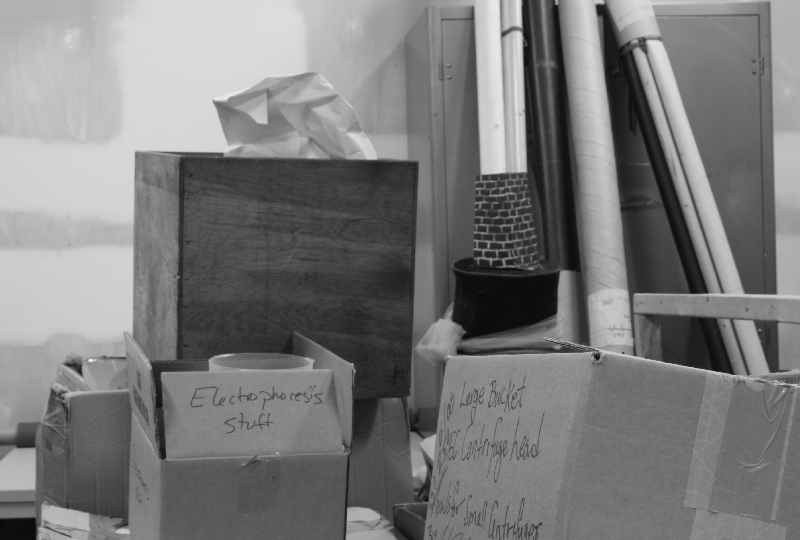 Electrophoresis
Stuff
Large Bucket
Centrifuge head
for Small Centrifuge